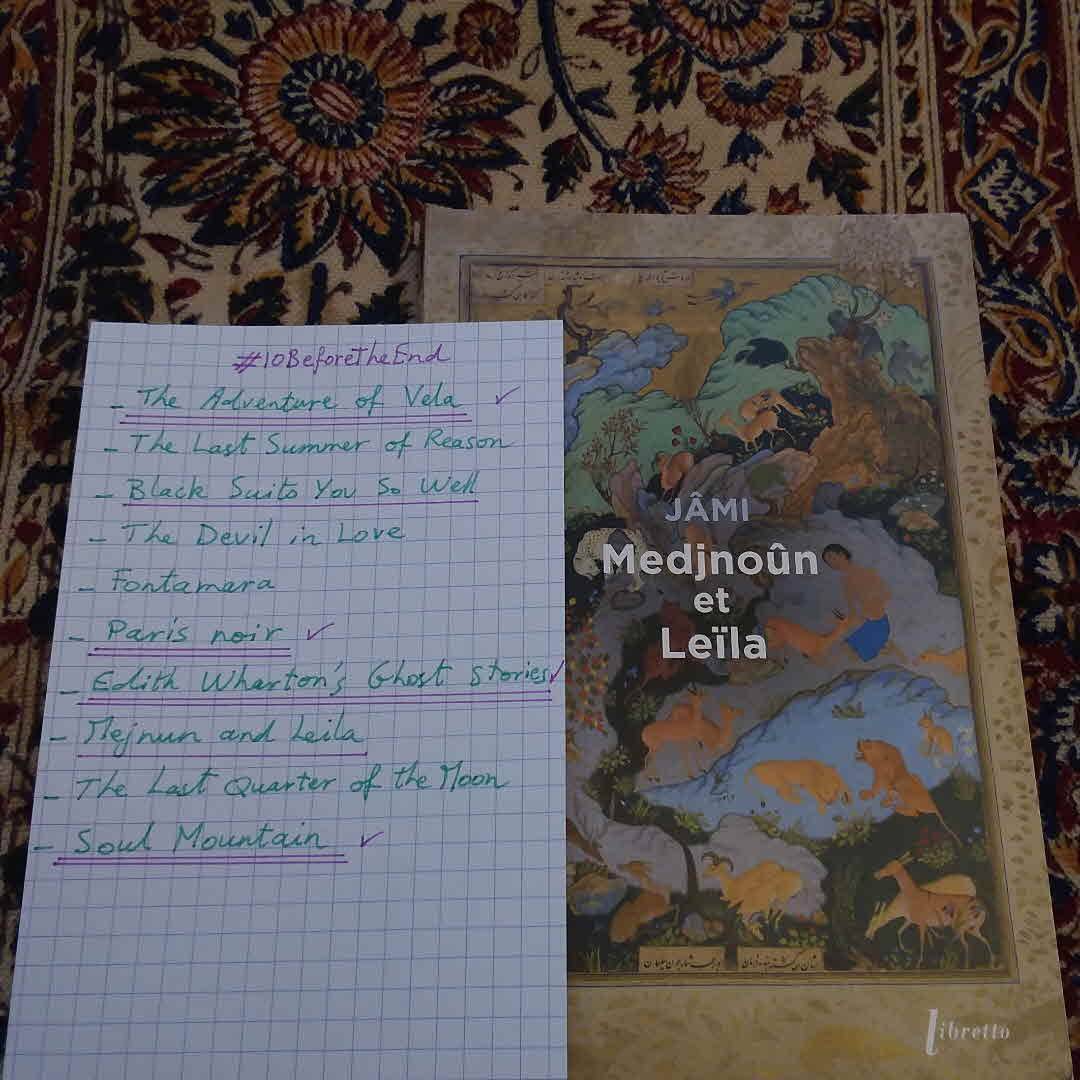 #10BeforetheEnd
- The Adventure of Vela ✓
- The Last Summer of Reason
- Black Suits You So Well
- The Devil in Love
- Fontamara
- Paris noir ✓
- Edith Wharton's Ghost Stories ✓
- Mejnun and Leila
- The Last Quarter of the Moon
- Soul Mountain ✓
JÂMI
Medjnoûn
et
Leïla
libretto